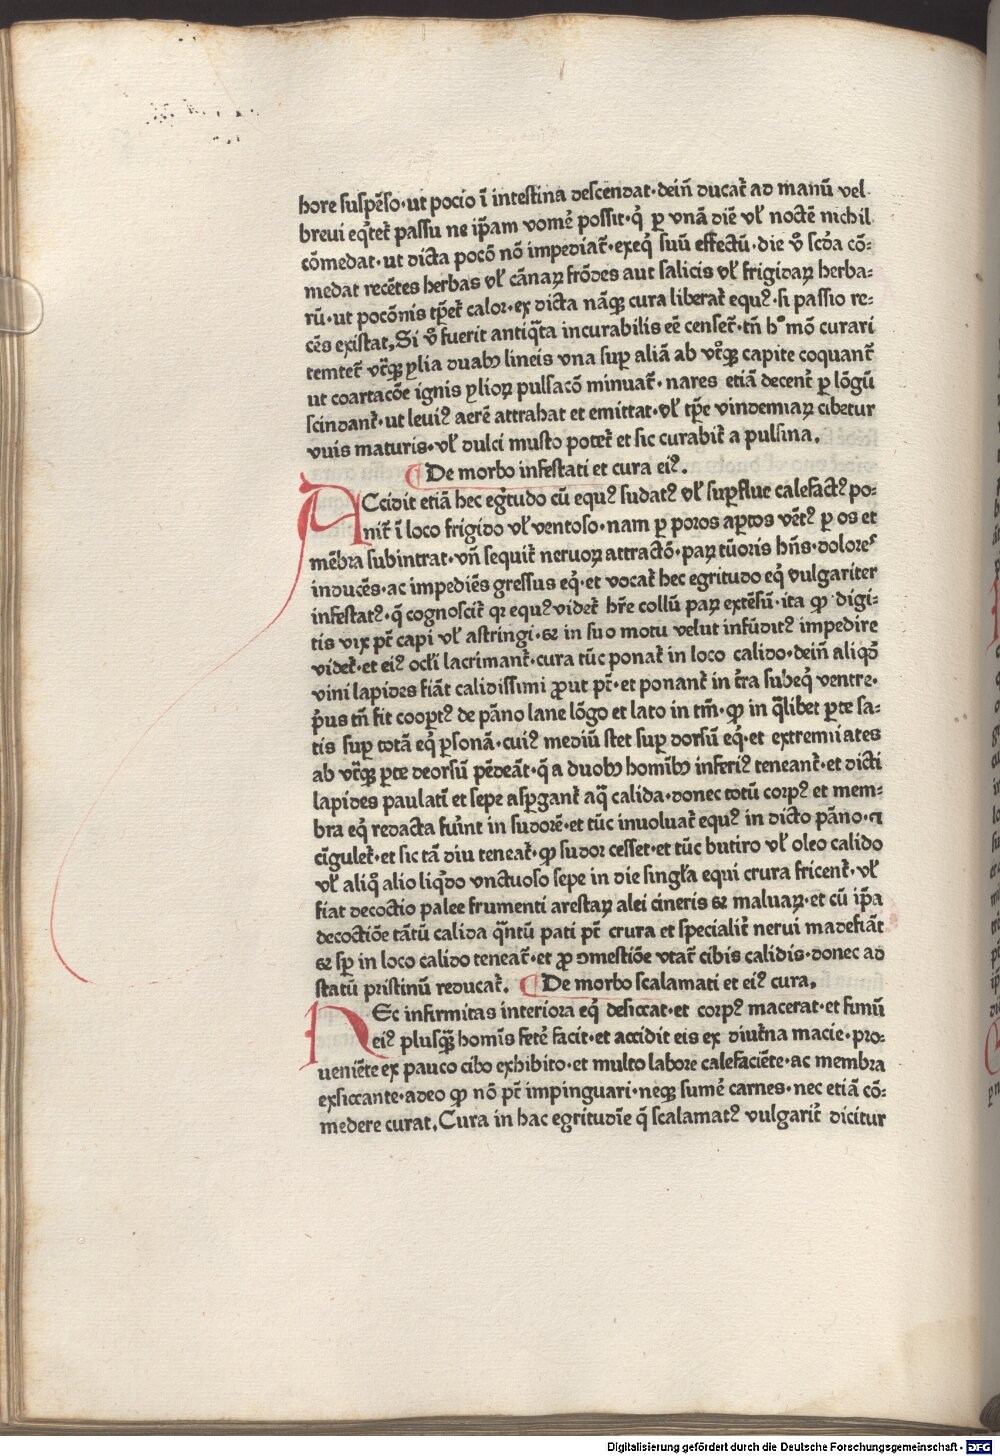 hore suspēso·ut pocio ī intestina descendat·deiñ ducat̃ ad manū vel
breui eq̇tet̃ passu ne ip̃am vomẽ possit·q̇ p̱ vnā diē vl̃ noctē nichil
cōmedat·ut dicta pocō nō impediat̃·exeq̇ suū effectū·die v̊ scd̃a cō-
medat recētes herbas vl̃ cānaꝝ frōdes aut salicis vl̃ frigidaꝝ herba-
rū·ut pocōnis tp̃et̃ calor·ex dicta nāqꝫ cura liberat̃ equꝰ·si passio re-
cēs existat. Si v̊ fuerit antiq̃ta incurabilis eē censet̃·tñ h° mō curari
temtet̃ vt̃qꝫ ylia duabꝫ lineis vna suꝑ aliā ab vt̃qꝫ capite coquant̃
ut coartacōe ignis ylioꝝ pulsacō minuat̃·nares etiā decent̃ ꝑ lōgū
scindant̃·ut leuiꝰ aerē attrahat et emittat·vl̃ tp̃e vindemiaꝝ cibetur
vuis maturis·vl̃ dulci musto potet̃ et sic curabit̃ a pulsina.
¶ De morbo infestati et cura eiꝰ.
ACcidit etiā hec eg̃tudo cū equꝰ sudatꝰ vl̃ suꝑflue calefactꝰ po-
nit̃ ī loco frigido vl̃ ventoso·nam ꝑ poros aꝑtos vētꝰ ꝑ os et
mēbra subintrat·vñ sequit̃ neruoꝝ attractō·paꝝ tūoris hñs·dolores
inducēs·ac impediēs gressus eq̇·et vocat̃ hec egritudo eq̇ vulgariter
infestatꝰ·q̄ cognoscit̃ qꝛ equꝰ videt̃ hr̃e collū paꝝ extēsū·ita ꝙ digi-
tis vix pt̃ capi vl̃ astringi·ꝫ in suo motu velut infūditꝰ impedire
videt̃·et eiꝰ ocl̃i lacrimant̃·cura tūc ponat̃ in loco calido·deiñ aliq̊
vini lapides fiāt calidissimi ꝓut pt̃·et ponant̃ in t̃ra subeq̇ ventre·
p̃us tñ sit cooꝑtꝰ de pāno lane lōgo et lato in tm̃·ꝙ in q̃libet ꝑte sa-
tis suꝑ totā eq̇ ꝑsonā·cuiꝰ mediū stet suꝑ dorsū eq̇·et extremitates
ab vt̃qꝫ ꝑte deorsū pēdeāt·q̄ a duobꝫ homībꝫ inferiꝰ teneant̃·et dicti
lapides paulatī et sepe asꝑgant̃ aq̃ calida·donec totū corpꝰ et mem-
bra eq̇ redacta fuīnt in sudorē·et tūc inuoluat̃ equꝰ in dicto pāno·⁊
cīgulet̃·et sic tā diu teneat̃·ꝙ sudor cesset·et tūc butiro vl̃ oleo calido
vl̃ aliq̊ alio liq̇do vnctuoso sepe in die singl̃a equi crura fricent̃·vl̃
fiat decoctio palee frumenti arestaꝝ alei cineris ꝫ maluaꝝ·et cū ip̃a
decoctiōe tātū calida q̄ntū pati pt̃ crura et specialit̃ nerui madefiāt
ꝫ sꝑ in loco calido teneat̃·et ꝓ ꝯmestiōe vtat̃ cibis calidis·donec ad
statū pristinū reducat̃. ¶ De morbo scalamati et eiꝰ cura.
HEc infirmitas interiora eq̇ desiccat·et corpꝰ macerat·et fimū
eiꝰ plusqꝫ homīs fetẽ facit·et accidit eis ex diut̃na macie·pro-
ueniēte ex pauco cibo exhibito·et multo labore calefaciēte·ac membra
exsiccante·adeo ꝙ nō pt̃ impinguari·neqꝫ sumẽ carnes·nec etiā cō-
medere curat. Cura in hac egritudīe q̄ scalamatꝰ vulgarit̃ dicitur
Digitalisierung gefördert durch die Deutsche Forschungsgemeinschaft - DFG